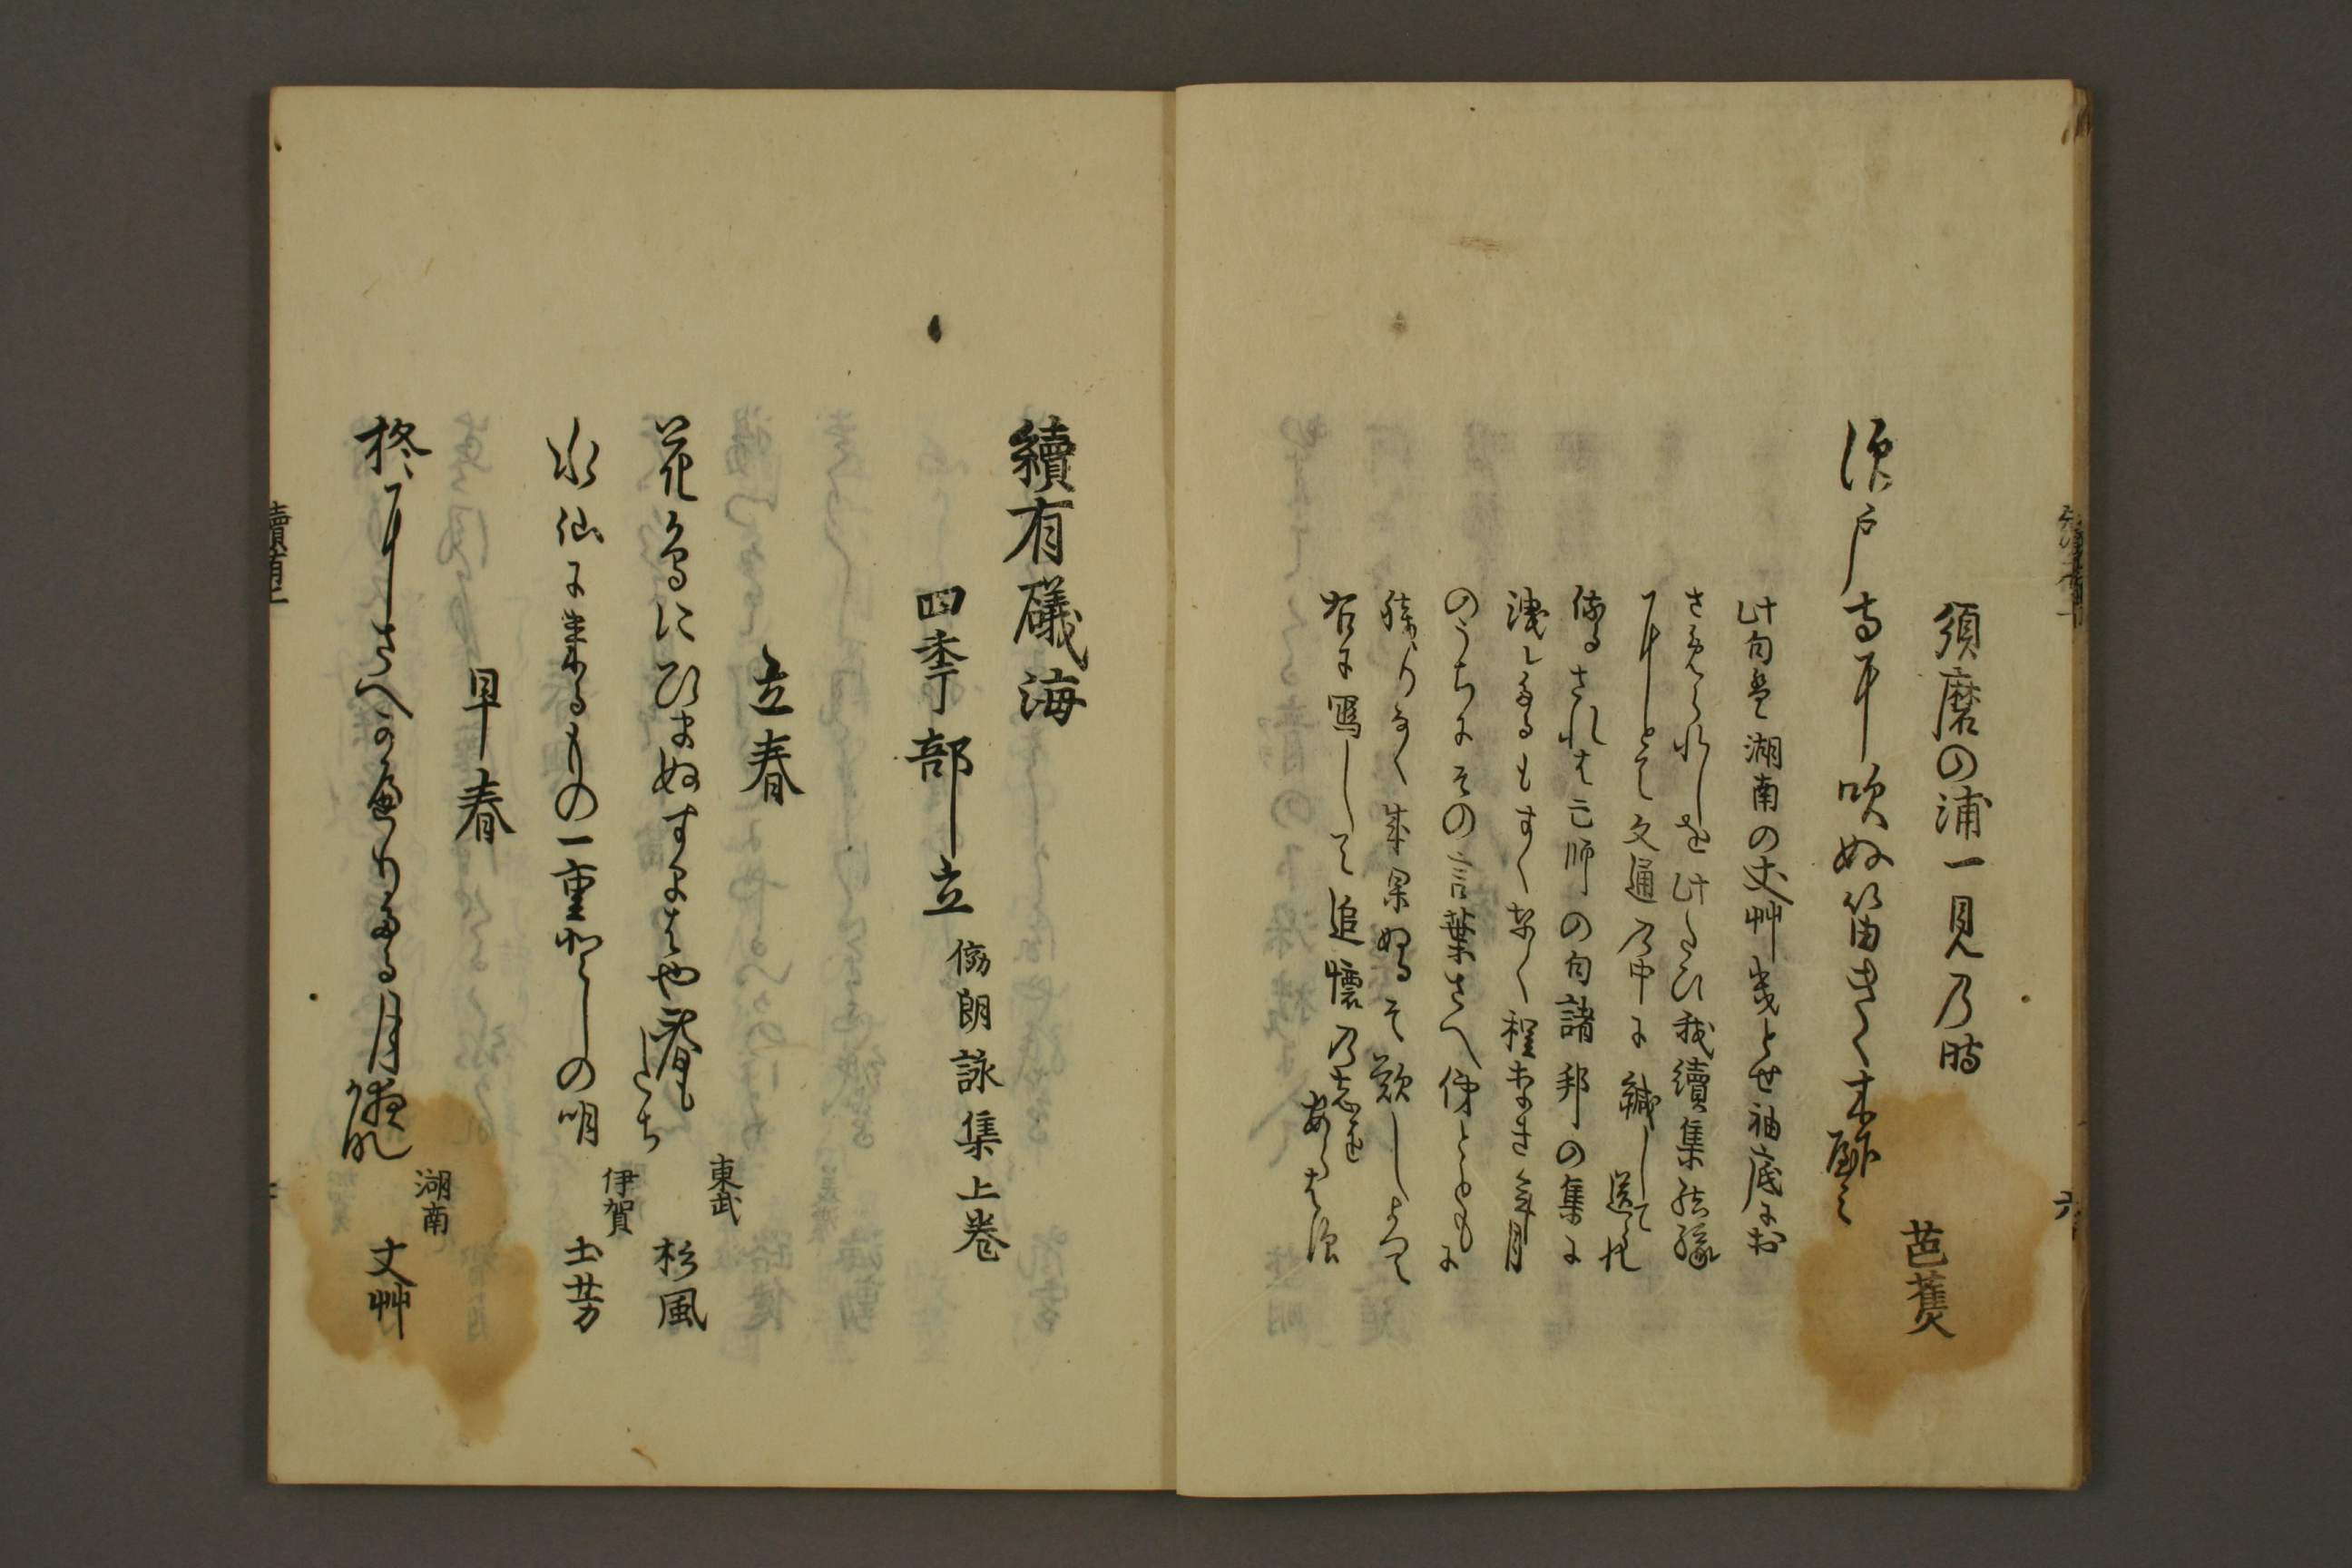 須磨の浦一見乃時
須广寺や吹ぬ笛きく木下やみ
芭蕉
此句は湖南の丈艸幾とせ袖底にお
さめられしを此たひ我續集結縁
にとて文通乃中に緘して送られ
侍るされは亡師の句諸邦の集に
洩したるもすくなく程ちかき年月
のうちにその言葉さへ侭とともに
残りなく成果ぬるそ歎しよつて
右に写して追懐乃志をあらはす
續有磯海
四季部立
倣朗詠集上巻
立春
花鳥にひまぬすまはや春もたち
東武
杉風
水仙に来るものか一重かしの明
伊賀
土芳
早春
柊にさへかへりたる月夜かな
湖南
丈艸